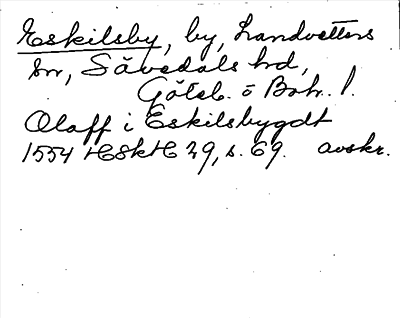 Eskilsby, by, Landvetters
sn, Sävedals hd,
Göteb. o Boh. l.
Olaff i Eskilsbygdt
1554 HSkH 29, s. 69. avskr.